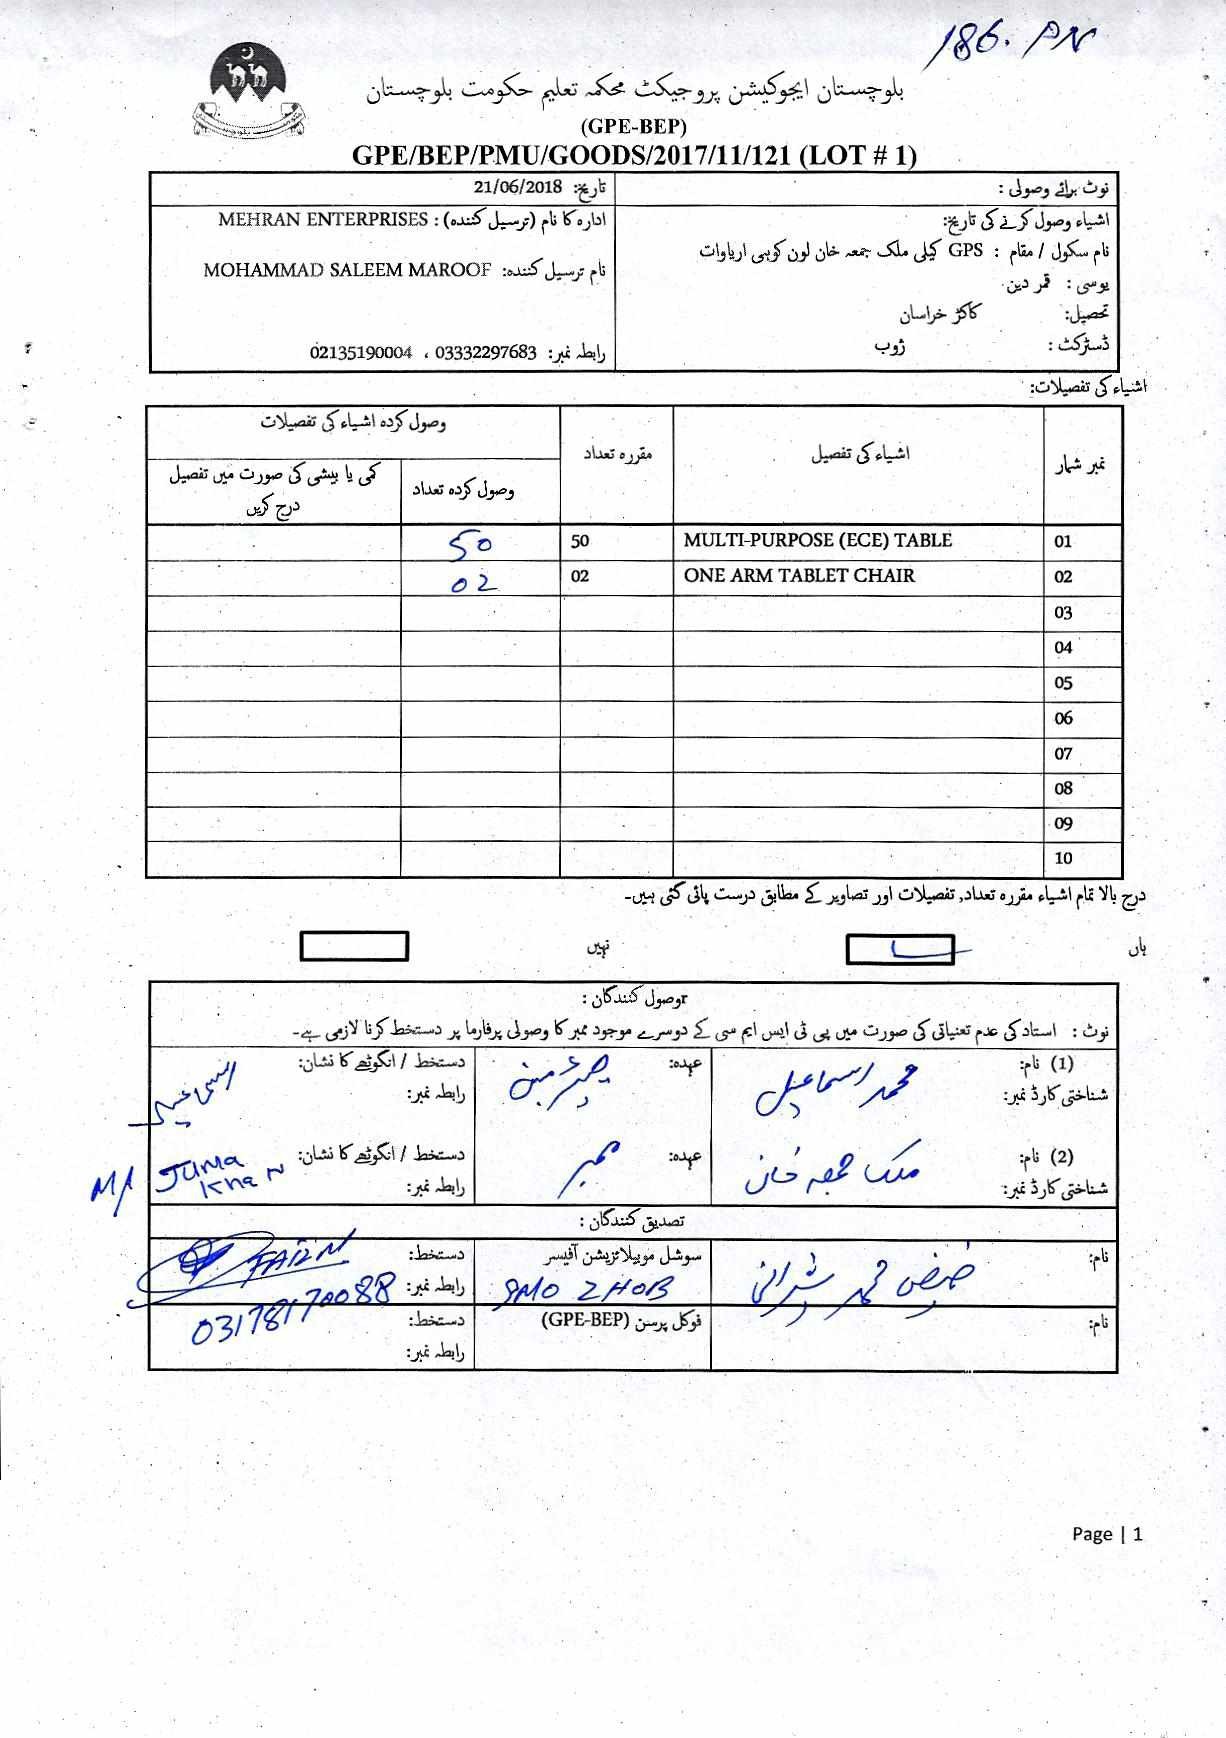 186. PN
بلوچستان ایجوکیشن پروجیکٹ محکمہ تعلیم حکومت بلوچستان
(GPE-BEP)
GPE/BEP/PMU/GOODS/2017/11/121 (LOT # 1)
نوٹ برائے وصولی :
تاریخ: 21/06/2018
اشیاء وصول کرنے کی تاریخ:
ادارہ کا نام (ترسیل کنندہ) : MEHRAN ENTERPRISES
نام سکول / مقام : GPS کیلی ملک جمعہ خان لون کوبی اریاوات
نام ترسیل کنندہ: MOHAMMAD SALEEM MAROOF
یوسی : قمر دین
تحصیل: کاکڑ خراسان
ڈسٹرکٹ : ژوب
رابطہ نمبر: 03332297683 ، 02135190004
اشیاء کی تفصیلات:
نمبر شمار اشیاء کی تفصیل مقررہ تعداد وصول کردہ اشیاء کی تفصیلات
وصول کردہ تعداد کمی یا بیشی کی صورت میں تفصیل درج کریں
01 MULTI-PURPOSE (ECE) TABLE 50 50
02 ONE ARM TABLET CHAIR 02 02
03
04
05
06
07
08
09
10
درج بالا تمام اشیاء مقررہ تعداد, تفصیلات اور تصاویر کے مطابق درست پائی گئی ہیں۔
ہاں نہیں
rوصول کنندگان :
نوٹ : استاد کی عدم تعنیاتی کی صورت میں پی ٹی ایس ایم سی کے دوسرے موجود ممبر کا وصولی پرفارما پر دستخط کرنا لازمی ہے۔
(1) نام: محمد اسماعیل عہدہ: چیئرمین دستخط / انگوٹھے کا نشان:
شناختی کارڈ نمبر: رابطہ نمبر:
(2) نام: ملک جمعہ خان عہدہ: ممبر دستخط / انگوٹھے کا نشان: M/ JUMA KHAN
شناختی کارڈ نمبر: رابطہ نمبر:
تصدیق کنندگان :
نام: فیض محمد شیرانی سوشل موبیلائزیشن آفیسر دستخط: FAIZM
SMO ZHOB رابطہ نمبر: 03178170088
نام: فوکل پرسن (GPE-BEP) دستخط:
رابطہ نمبر:
Page | 1